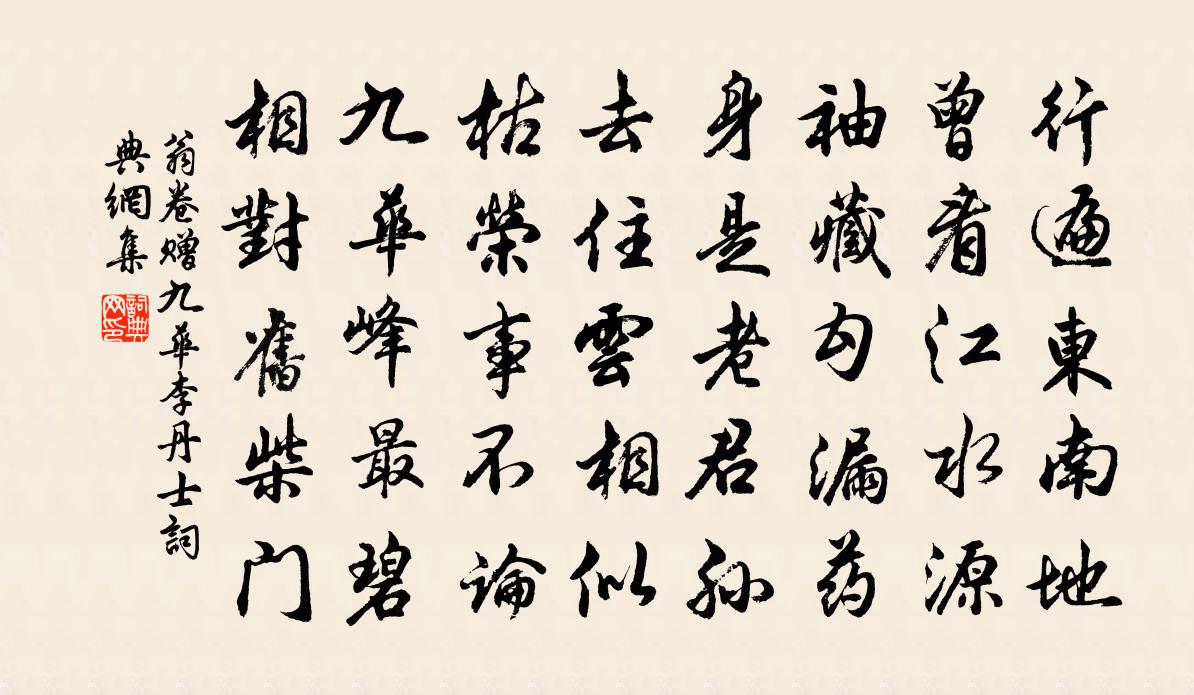 行遍東南地
曾看江水源
袖藏勾漏药
身是老君孙
去住雲相似
枯榮事不論
九華峰最碧
相對舊柴门
翁卷赠九華李丹士詞
典網集
詞典
网印